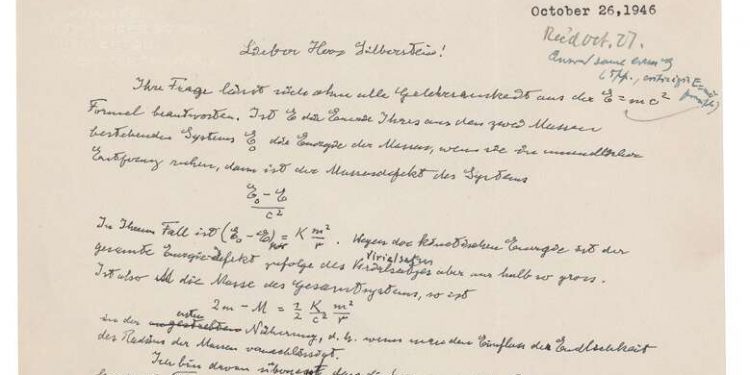 October 26, 1946
Rec'd Oct. 27.
Answ'd same evening
Lieber Herr Silberstein!
Ihre Frage lässt sich ohne alle Gelehrsamkeit aus der E = mc²
Formel beantworten. Ist E die Energie Ihres aus den zwei Massen
bestehenden Systems E₀ die Energie der Massen, wenn sie in unendlicher
Entfernung ruhen, dann ist der Massendefekt des Systems
E₀ - E
c²
In Ihrem Fall ist (E₀ - E)pot = K m²/r. Wegen der kinetischen Energie ist der
gesamte Energiedefekt zufolge des Virialsatzes aber nur halb so gross.
Virialsatzes
Ist also M die Masse des Gesamtsystems, so ist
2m - M = 1/2 K/c² m²/r
ersten
in der Näherung, d. h. wenn man den Einfluss der Endlichkeit
des Radius der Massen vernachlässigt.
Ich bin davon überzeugt, dass